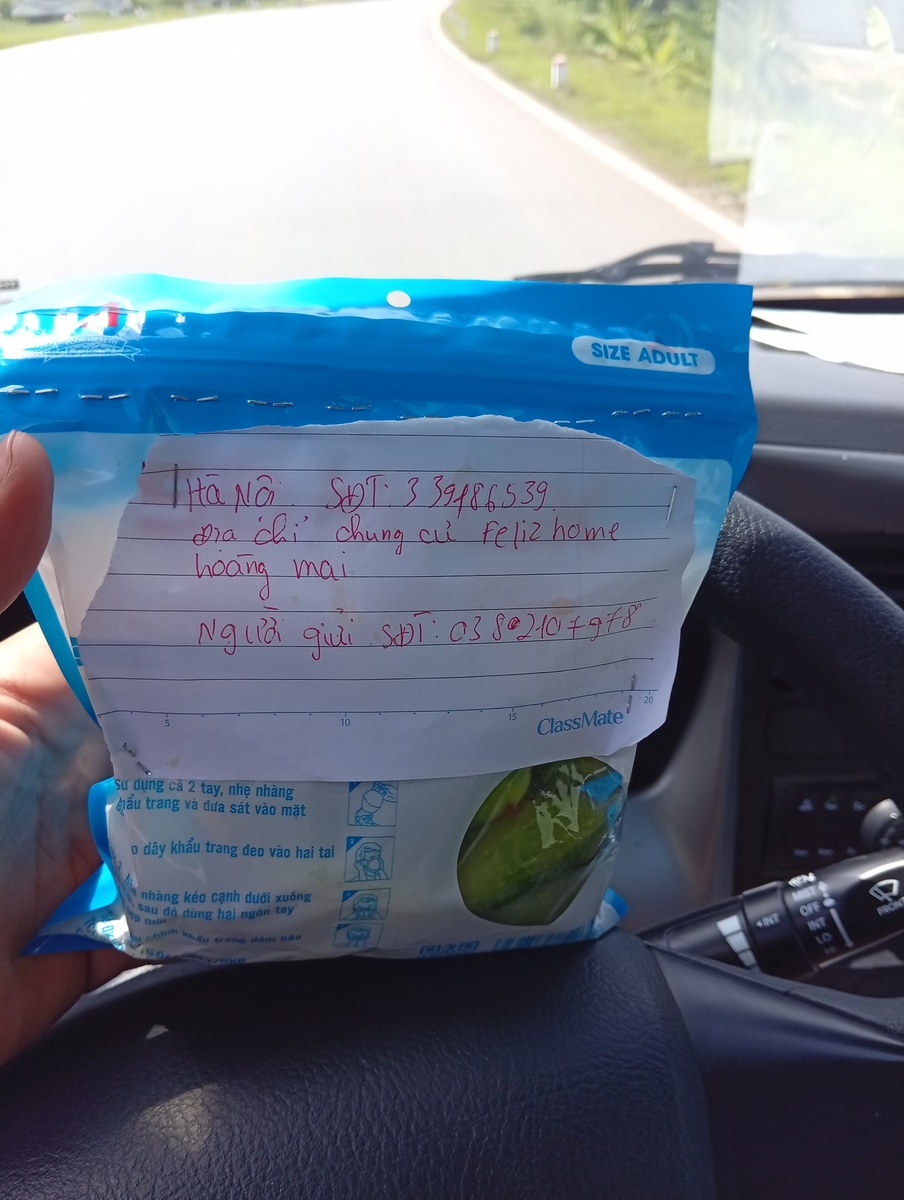 SIZE ADULT
Hà Nội SĐT: 339786539
Địa chỉ chung cư Feliz home
hoàng mai
Người gửi SĐT: 0382107978
5 10 15 20
ClassMate
Sử dụng cả 2 tay, nhẹ nhàng
khẩu trang và đưa sát vào mặt
o dây khẩu trang đeo vào hai tai
nhàng kéo cạnh dưới xuống
sau đó dùng hai ngón tay
chỉnh khẩu trang đảm bảo
INT
OFF
INT
LO
FRONT